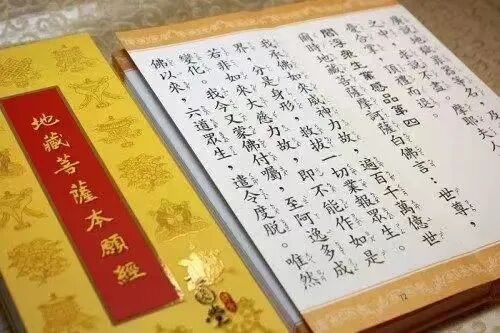 地藏菩薩本願經
之中，求說不盡。摩耶夫人
合掌，頂禮而退。
閻浮眾生業感品第四
爾時地藏菩薩摩訶薩白佛言：世尊，
我承佛如來威神力故，遍百千萬億世
界，分是身形，救拔一切業報眾生。
若非如來大慈力故，即不能作如是
變化。我今又蒙佛付囑，至阿逸多成
佛以來，六道眾生，遣令度脫。唯然